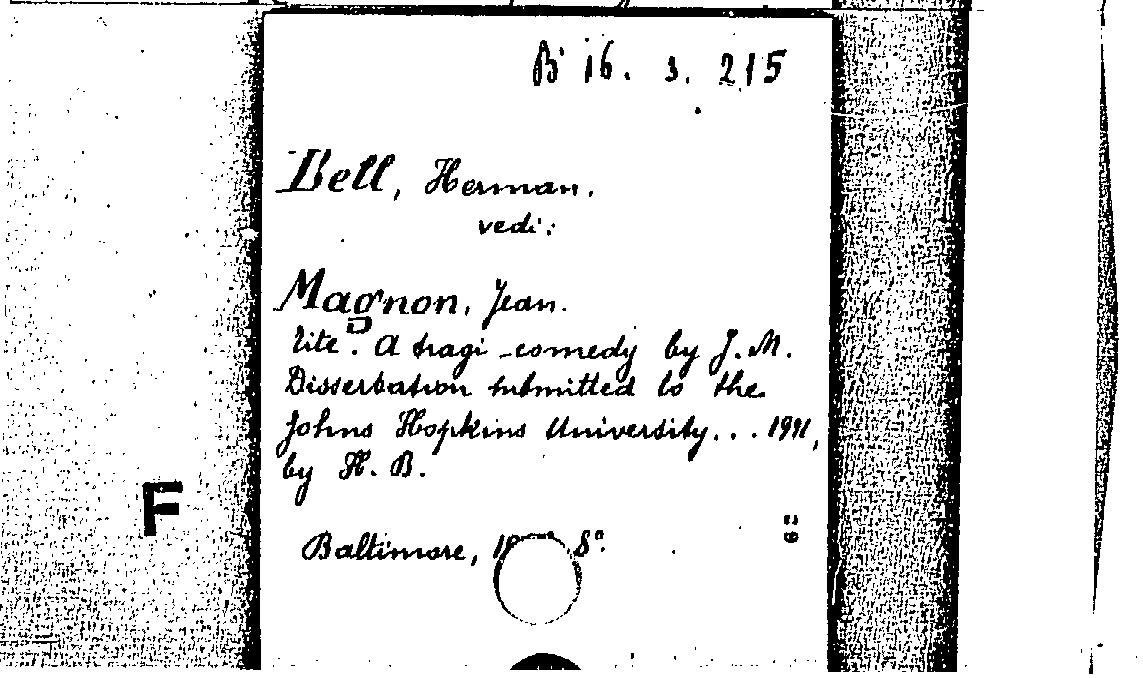 B 16. s. 215
Bell, Herman.
vedi:
Magnon, Jean.
Tite. A tragi-comedy by J.M.
Dissertation submitted to the
Johns Hopkins University...
by H. B.
F
Baltimore, 8°.